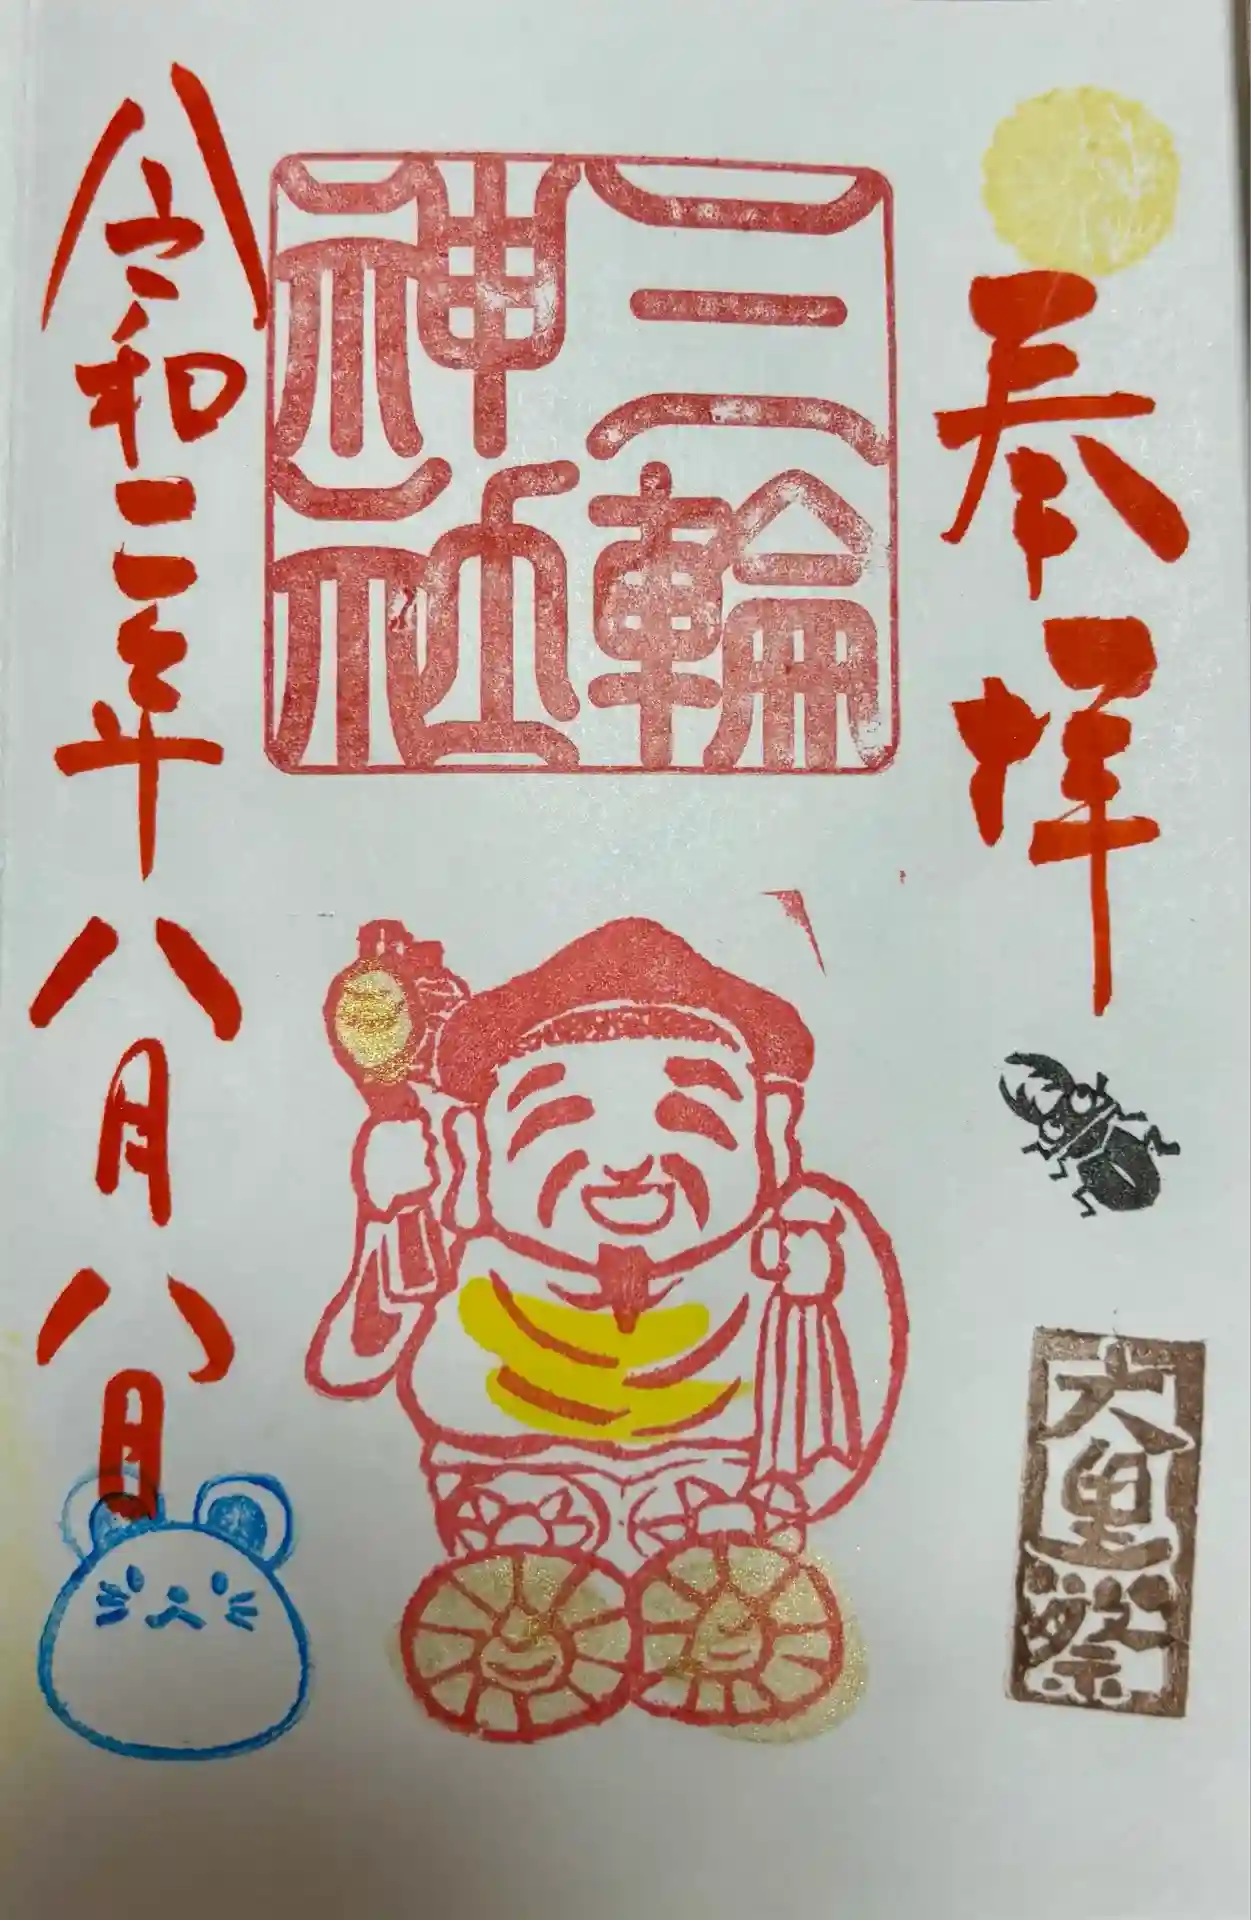 奉拝
大黒祭
三輪
神社
令和二年八月八日